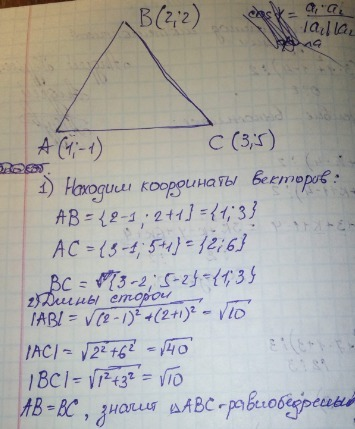 B(2;2)
A(1;-1)
C (3;5)
1) Находим координаты векторов:
AB = {2-1; 2+1} = {1;3}
AC = {3-1; 5+1} = {2;6}
BC = {3-2; 5-2} = {1;3}
2) Длины сторон
|AB| = √(2-1)² + (2+1)² = √10
|AC| = √2²+6² = √40
|BC| = √1²+3² = √10
AB=BC, значит △ABC-равнобедренный